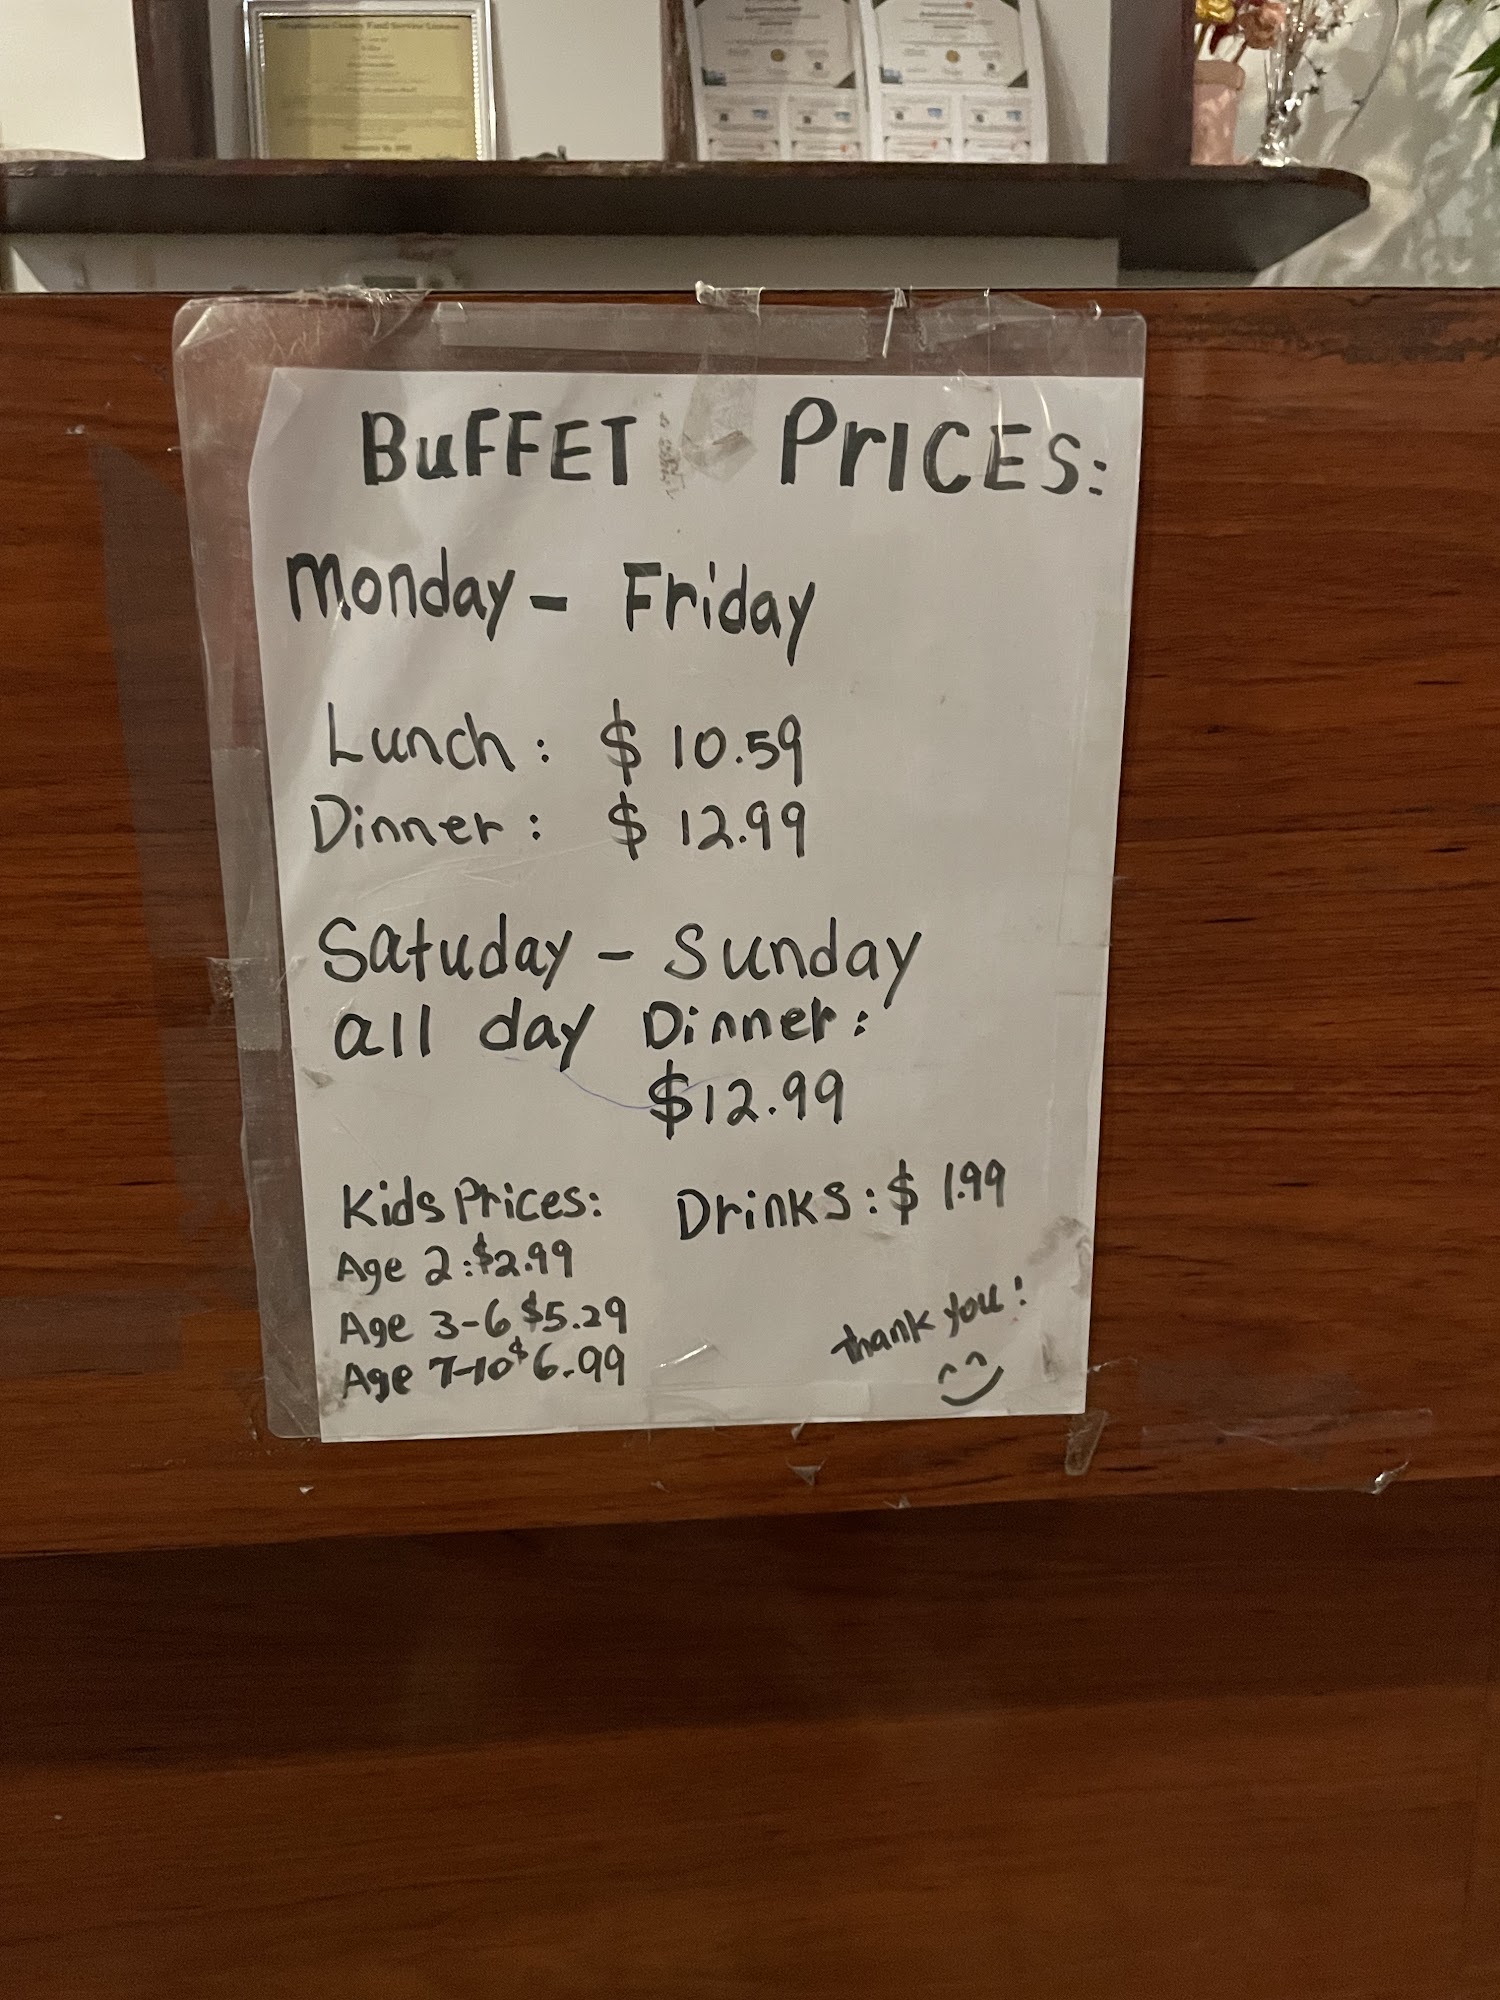 BuFFET PrICES:
Monday - Friday
Lunch: $ 10.59
Dinner: $ 12.99
Satuday - Sunday
all day Dinner:
$12.99
Kids Prices:
Drinks: $ 1.99
Age 2: $2.99
Age 3-6 $5.29
Age 7-10 $6.99
thank you!